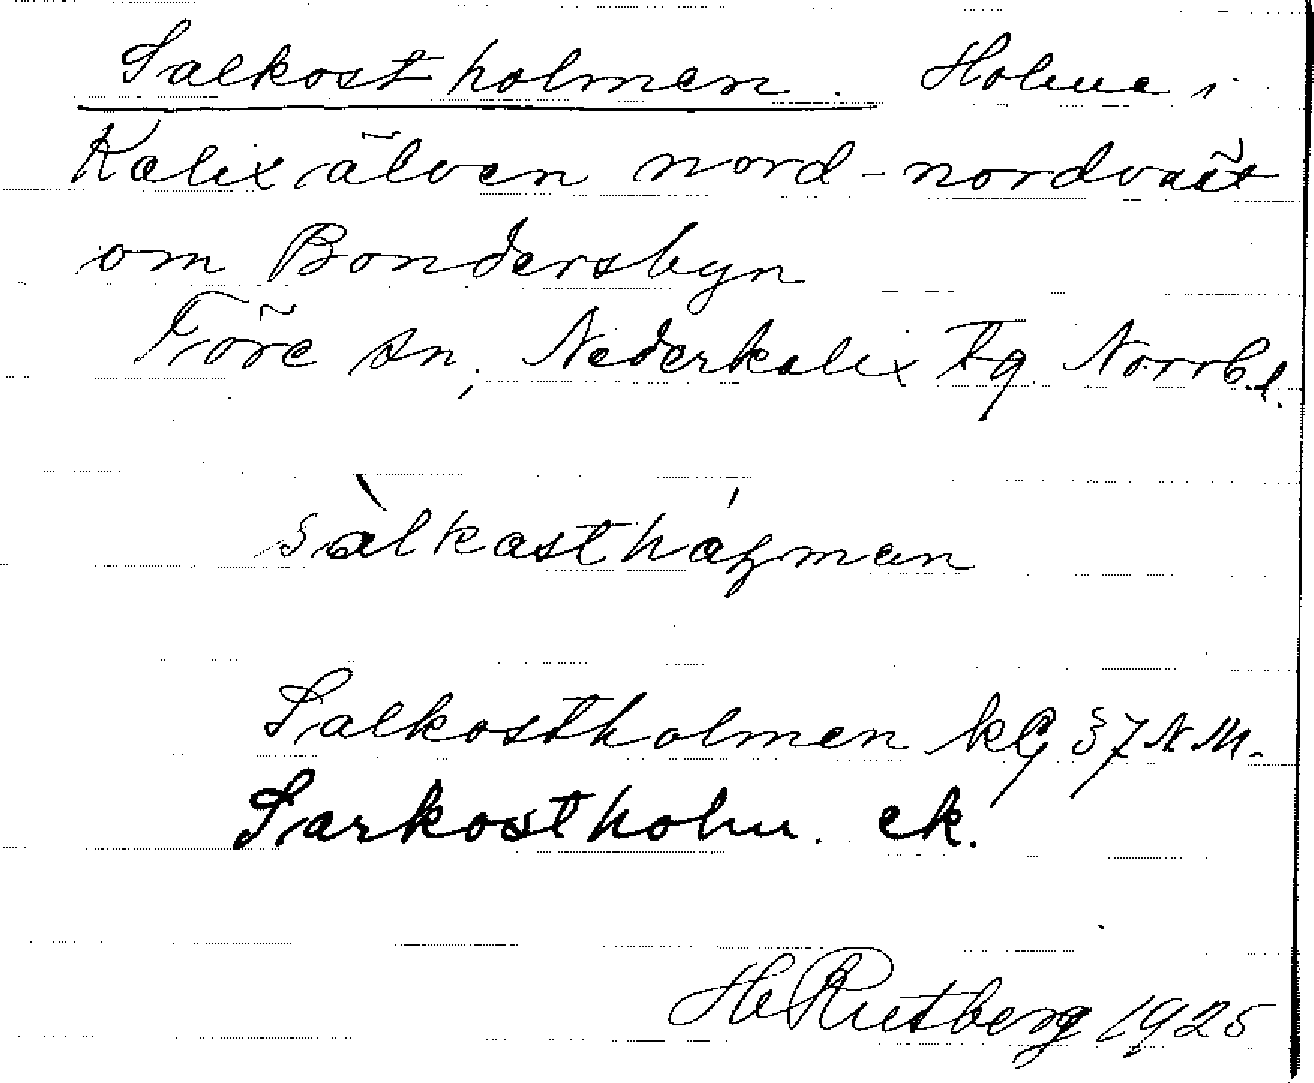 Salkostholmen. Holme i
Kalixälven nord-nordväst
om Bondersbyn
Töre sn, Nederkalix tg Norrb.l.
sàlkastháƚman
Salkostholmen kg §7 N.M.
Sarkostholm. ek.
H Rutberg 1925